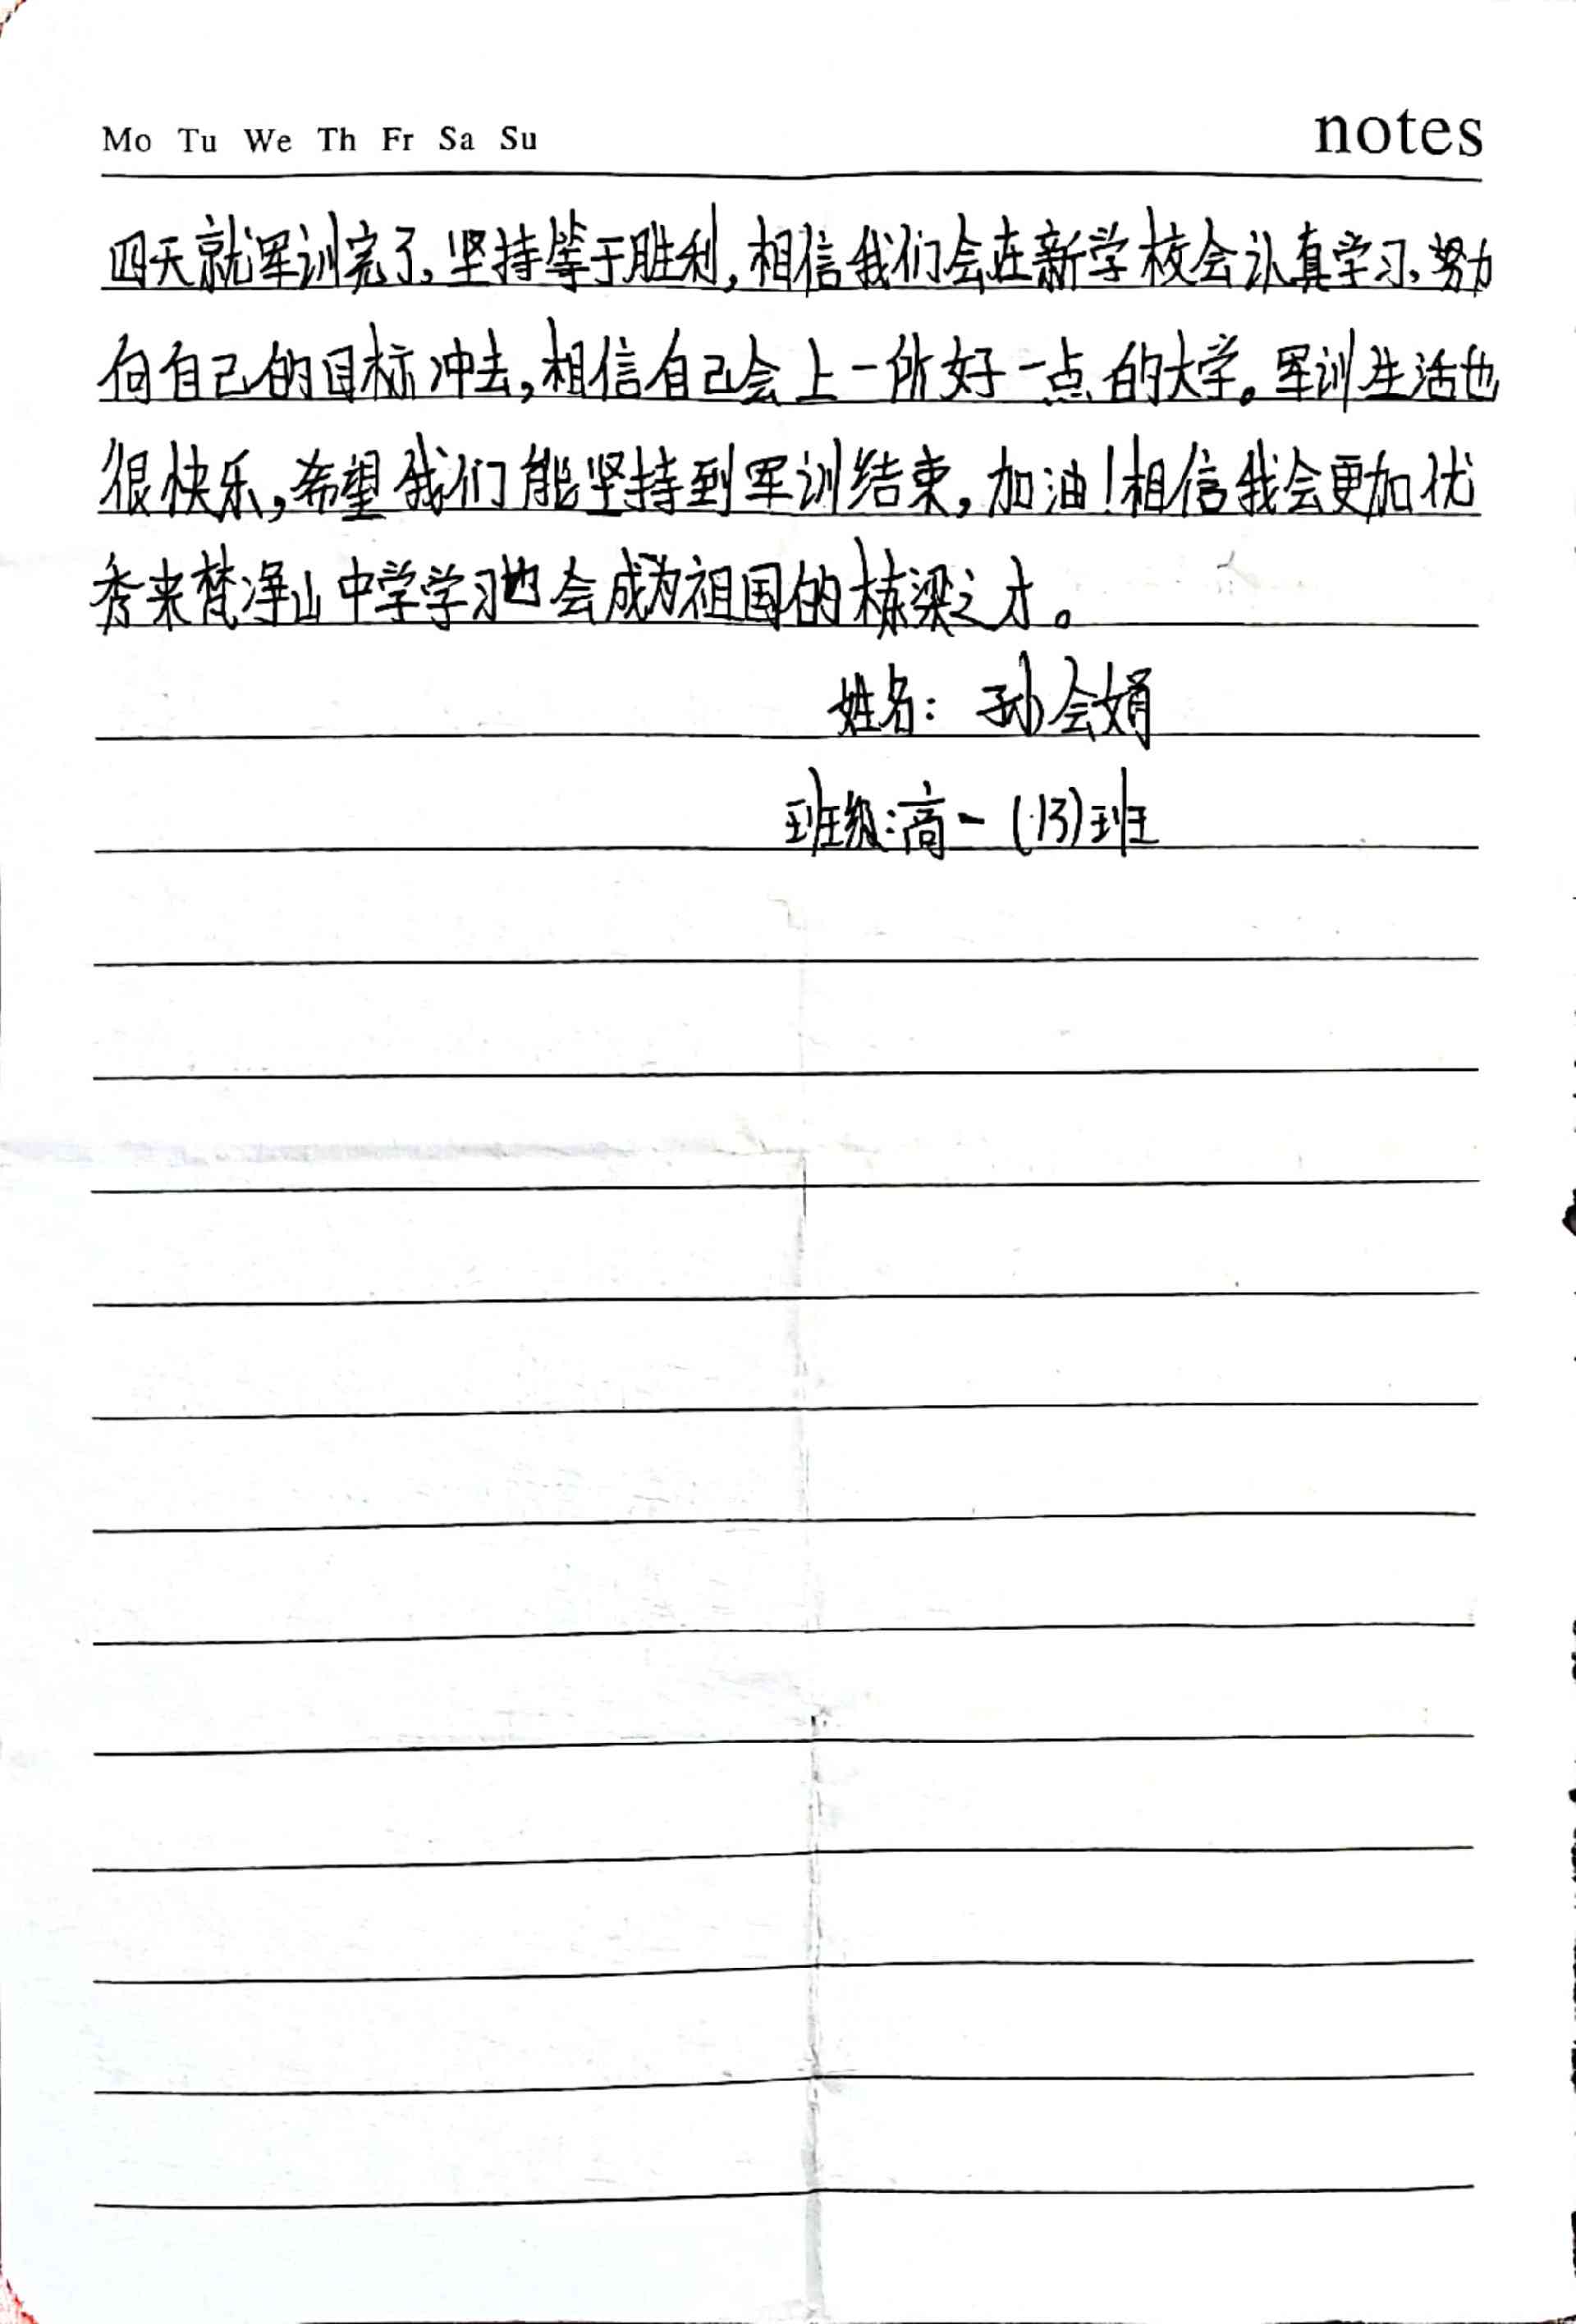 Mo Tu We Th Fr Sa Su notes
四天就军训完了,坚持等于胜利,相信我们会在新学校会认真学习,努力
向自己的目标冲去,相信自己会上一所好一点的大学。军训生活也
很快乐,希望我们能坚持到军训结束,加油!相信我会更加优
秀来梵净山中学学习也会成为祖国的栋梁之才。
姓名:孙会娟
班级:高一(13)班